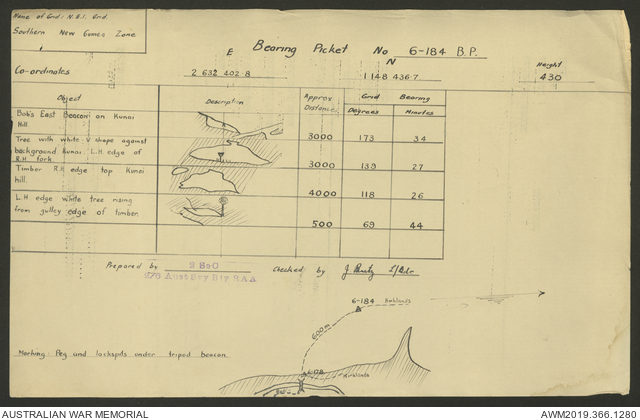 Name of Grid: N.E.I. Grid.
Southern New Guinea Zone
Bearing Picket No 6-184 B.P.
E N Height
Co-ordinates 2 632 402.8 1 148 436.7 430
Object Description Approx Distance Grid Bearing
Degrees Minutes
Bob's East Beacon on Kunai
Hill.
3000 173 34
Tree with white V shape against
background Kunai L.H edge of
R.H fork.
3000 139 27
Timber R.H edge top Kunai
hill.
4000 118 26
L.H edge white tree rising
from gulley edge of timber.
500 69 44
Prepared by 2 Sec
2/6 Aust Svy Bty RAA
Checked by
6-184 Kirklands
600m
6-178
Kirklands
Marking: Peg and lockspits under tripod beacon.
AUSTRALIAN WAR MEMORIAL
AWM2019.366.1280